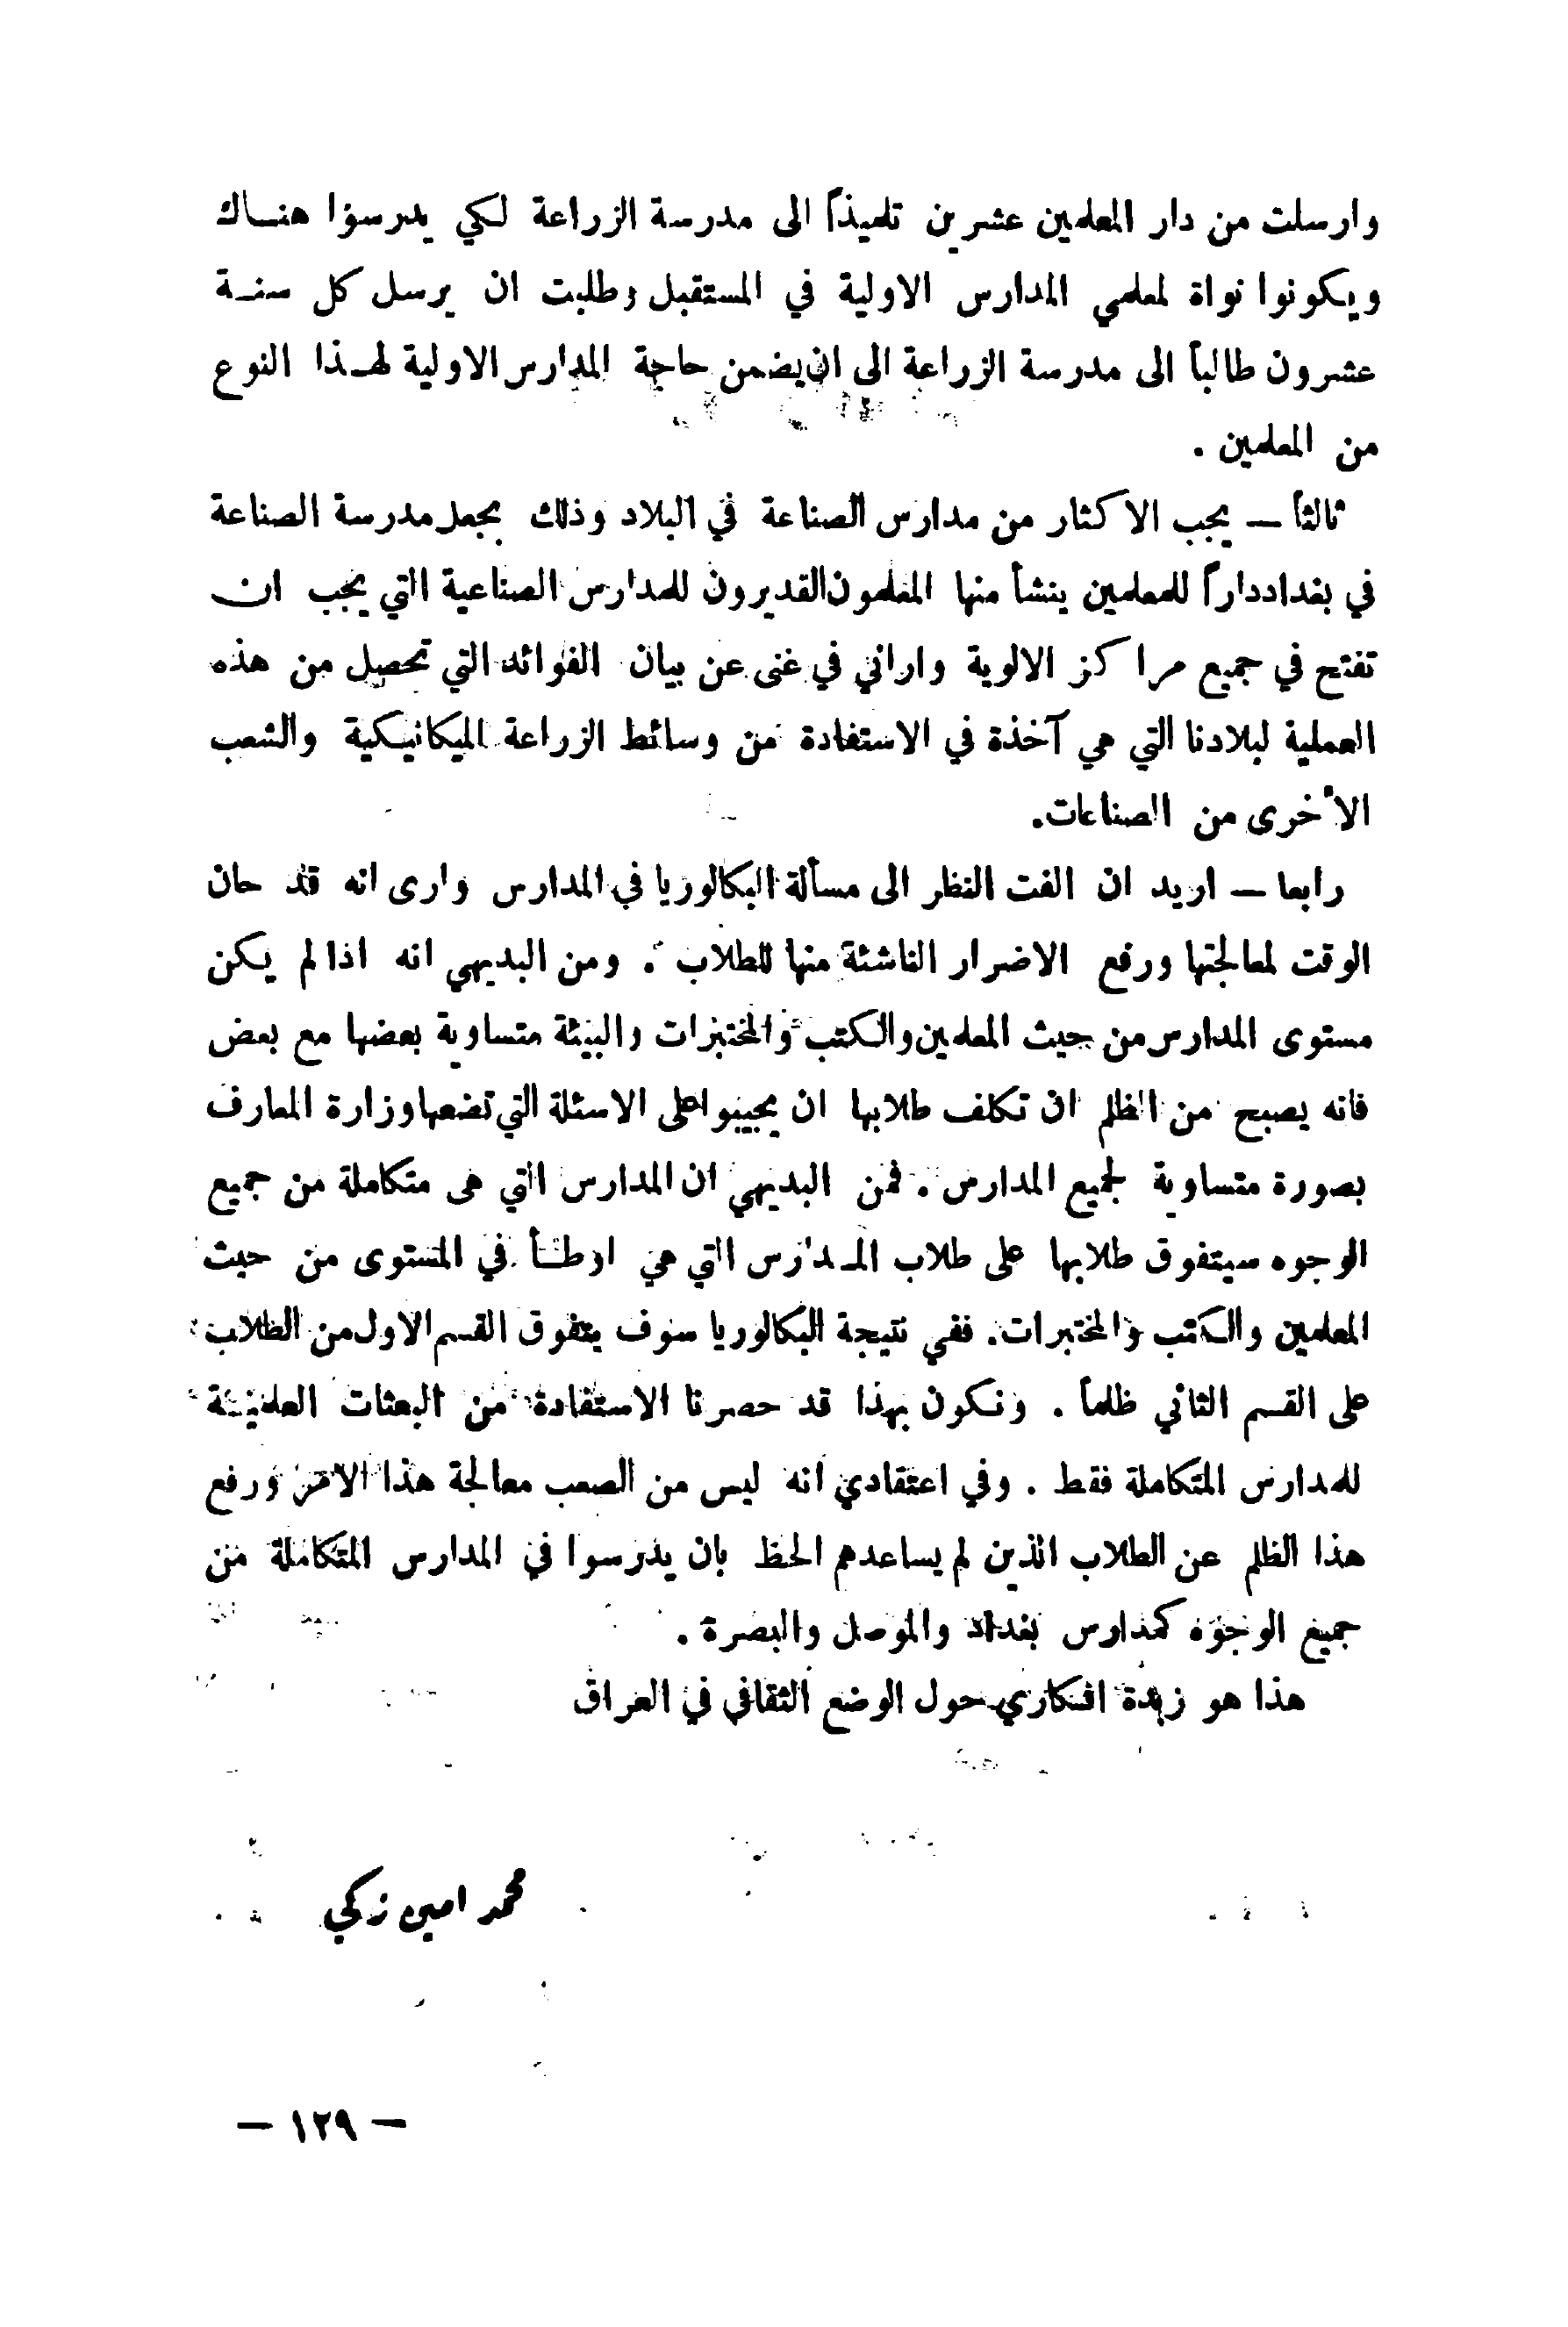 وارسلت من دار المعلمين عشرين تلميذاً الى مدرسة الزراعة لكي يدرسوا هنـــاك
ويكونوا نواة لمعلمي المدارس الاولية في المستقبل وطلبت ان يرسل كل سنـة
عشرون طالباً الى مدرسة الزراعة الى ان يضمن حاجة المدارس الاولية لهـذا النوع
من المعلمين .
ثالثاً — يجب الاكثار من مدارس الصناعة في البلاد وذلك بجعل مدرسة الصناعة
في بغداد داراً للمعلمين ينشأ منها المعلمون القديرون للمدارس الصناعية التي يجب ان
تفتح في جميع مراكز الالوية واراني في غنى عن بيان الفوائد التي تحصل من هذه
العملية لبلادنا التي هي آخذة في الاستفادة من وسائط الزراعة الميكانيكية والشعب
الأخرى من الصناعات.
رابعا — اريد ان الفت النظر الى مسألة البكالوريا في المدارس وارى انه قد حان
الوقت لمعالجتها ورفع الاضرار الناشئة منها للطلاب . ومن البديهي انه اذا لم يكن
مستوى المدارس من حيث المعلمين والكتب والمختبرات والبيئة متساوية بعضها مع بعض
فانه يصبح من الظلم ان تكلف طلابها ان يجيبوا على الاسئلة التي تضعها وزارة المعارف
بصورة متساوية لجميع المدارس . فمن البديهي ان المدارس التي هى متكاملة من جميع
الوجوه سيتفوق طلابها على طلاب المـدارس التي هي اوطـأ في المستوى من حيث
المعلمين والكتب والمختبرات. ففي نتيجة البكالوريا سوف يتفوق القسم الاول من الطلاب
على القسم الثاني ظلماً . ونكون بهذا قد حصرنا الاستفادة من البعثات العلميـة
للمدارس المتكاملة فقط . وفي اعتقادي انه ليس من الصعب معالجة هذا الامر ورفع
هذا الظلم عن الطلاب الذين لم يساعدهم الحظ بان يدرسوا في المدارس المتكاملة من
جميع الوجوه كمدارس بغداد والموصل والبصرة .
هذا هو زبدة افكاري حول الوضع الثقافي في العراق
محمد امين زكي
— ١٢٩ —